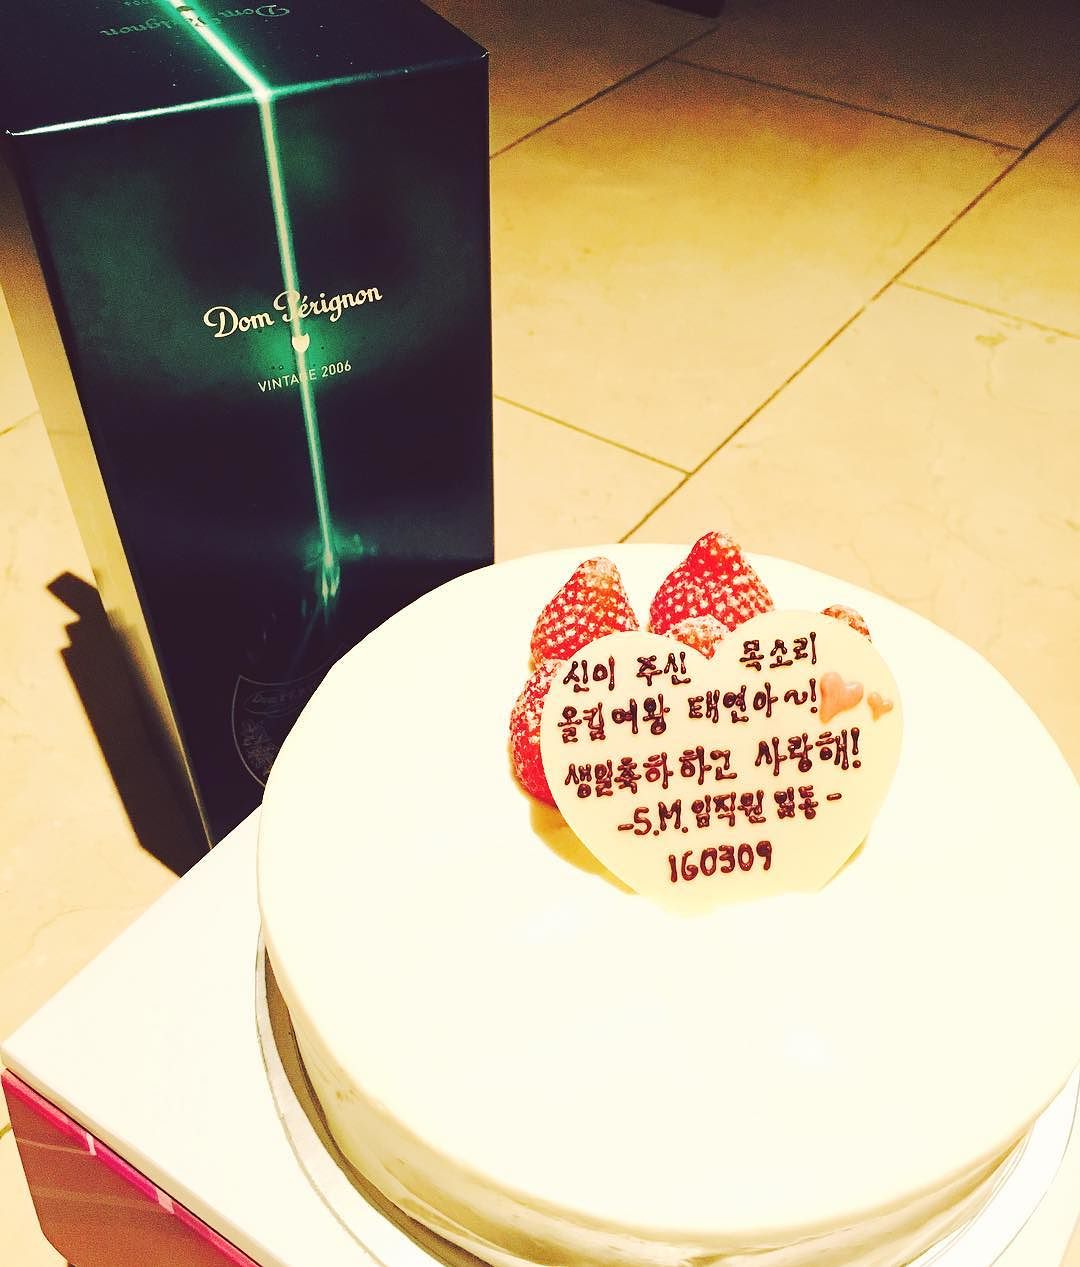 Dom Pérignon
Dom Pérignon
VINTAGE 2006
신이 주신 목소리
올킬여왕 태연아~!
생일축하하고 사랑해!
-S.M.임직원 일동-
160309